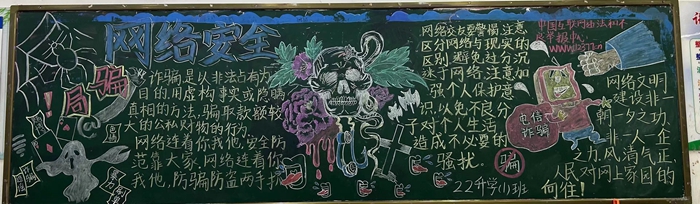 网络安全
诈骗是以非法占有为
目的,用虚构事实或隐瞒
真相的方法,骗取款额较
大的公私财物的行为.
网络连着你我他,安全防
范靠大家,网络连着你
我他,防骗防盗两手抓
局
骗
网络交友要警惕,注意
区分网络与现实的
区别,避免过分沉
迷于网络,注意加
强个人保护意
识,以免不良分
子对个人生活
造成不必要的
骚扰。
骗
22升学(1)班
中国互联网违法和不
良举报中心:
www.12377.cn
电信
诈骗
网络文明
建设非一
朝一夕之功,
非一人一企
之力,风清气正
人民对网上家园的
向往!